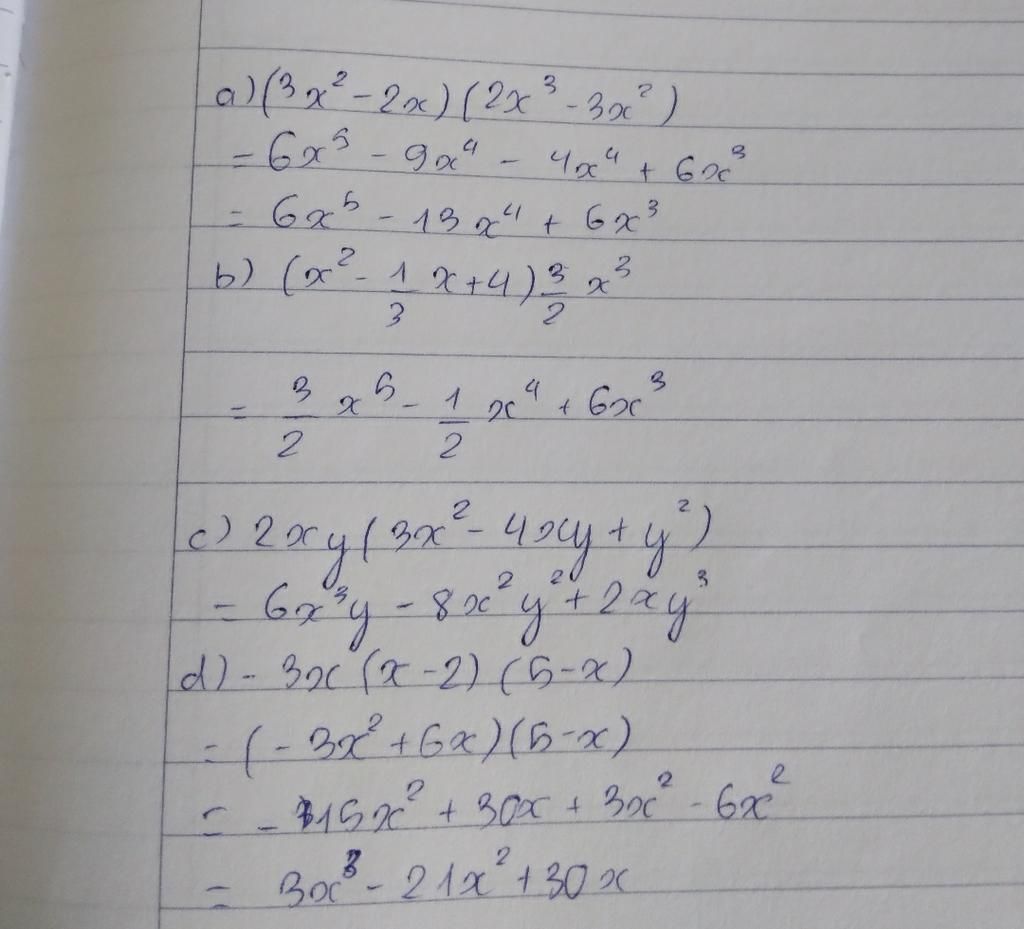 a) (3x² - 2x) (2x³ - 3x²)
= 6x⁵ - 9x⁴ - 4x⁴ + 6x³
= 6x⁵ - 13x⁴ + 6x³
b) (x² - 1/3 x + 4) 3/2 x³
= 3/2 x⁵ - 1/2 x⁴ + 6x³
c) 2xy (3x² - 4xy + y²)
= 6x³y - 8x²y² + 2xy³
d) - 3x (x - 2) (5 - x)
= (- 3x² + 6x) (5 - x)
= - 15x² + 30x + 3x² - 6x²
= 3x³ - 21x² + 30x